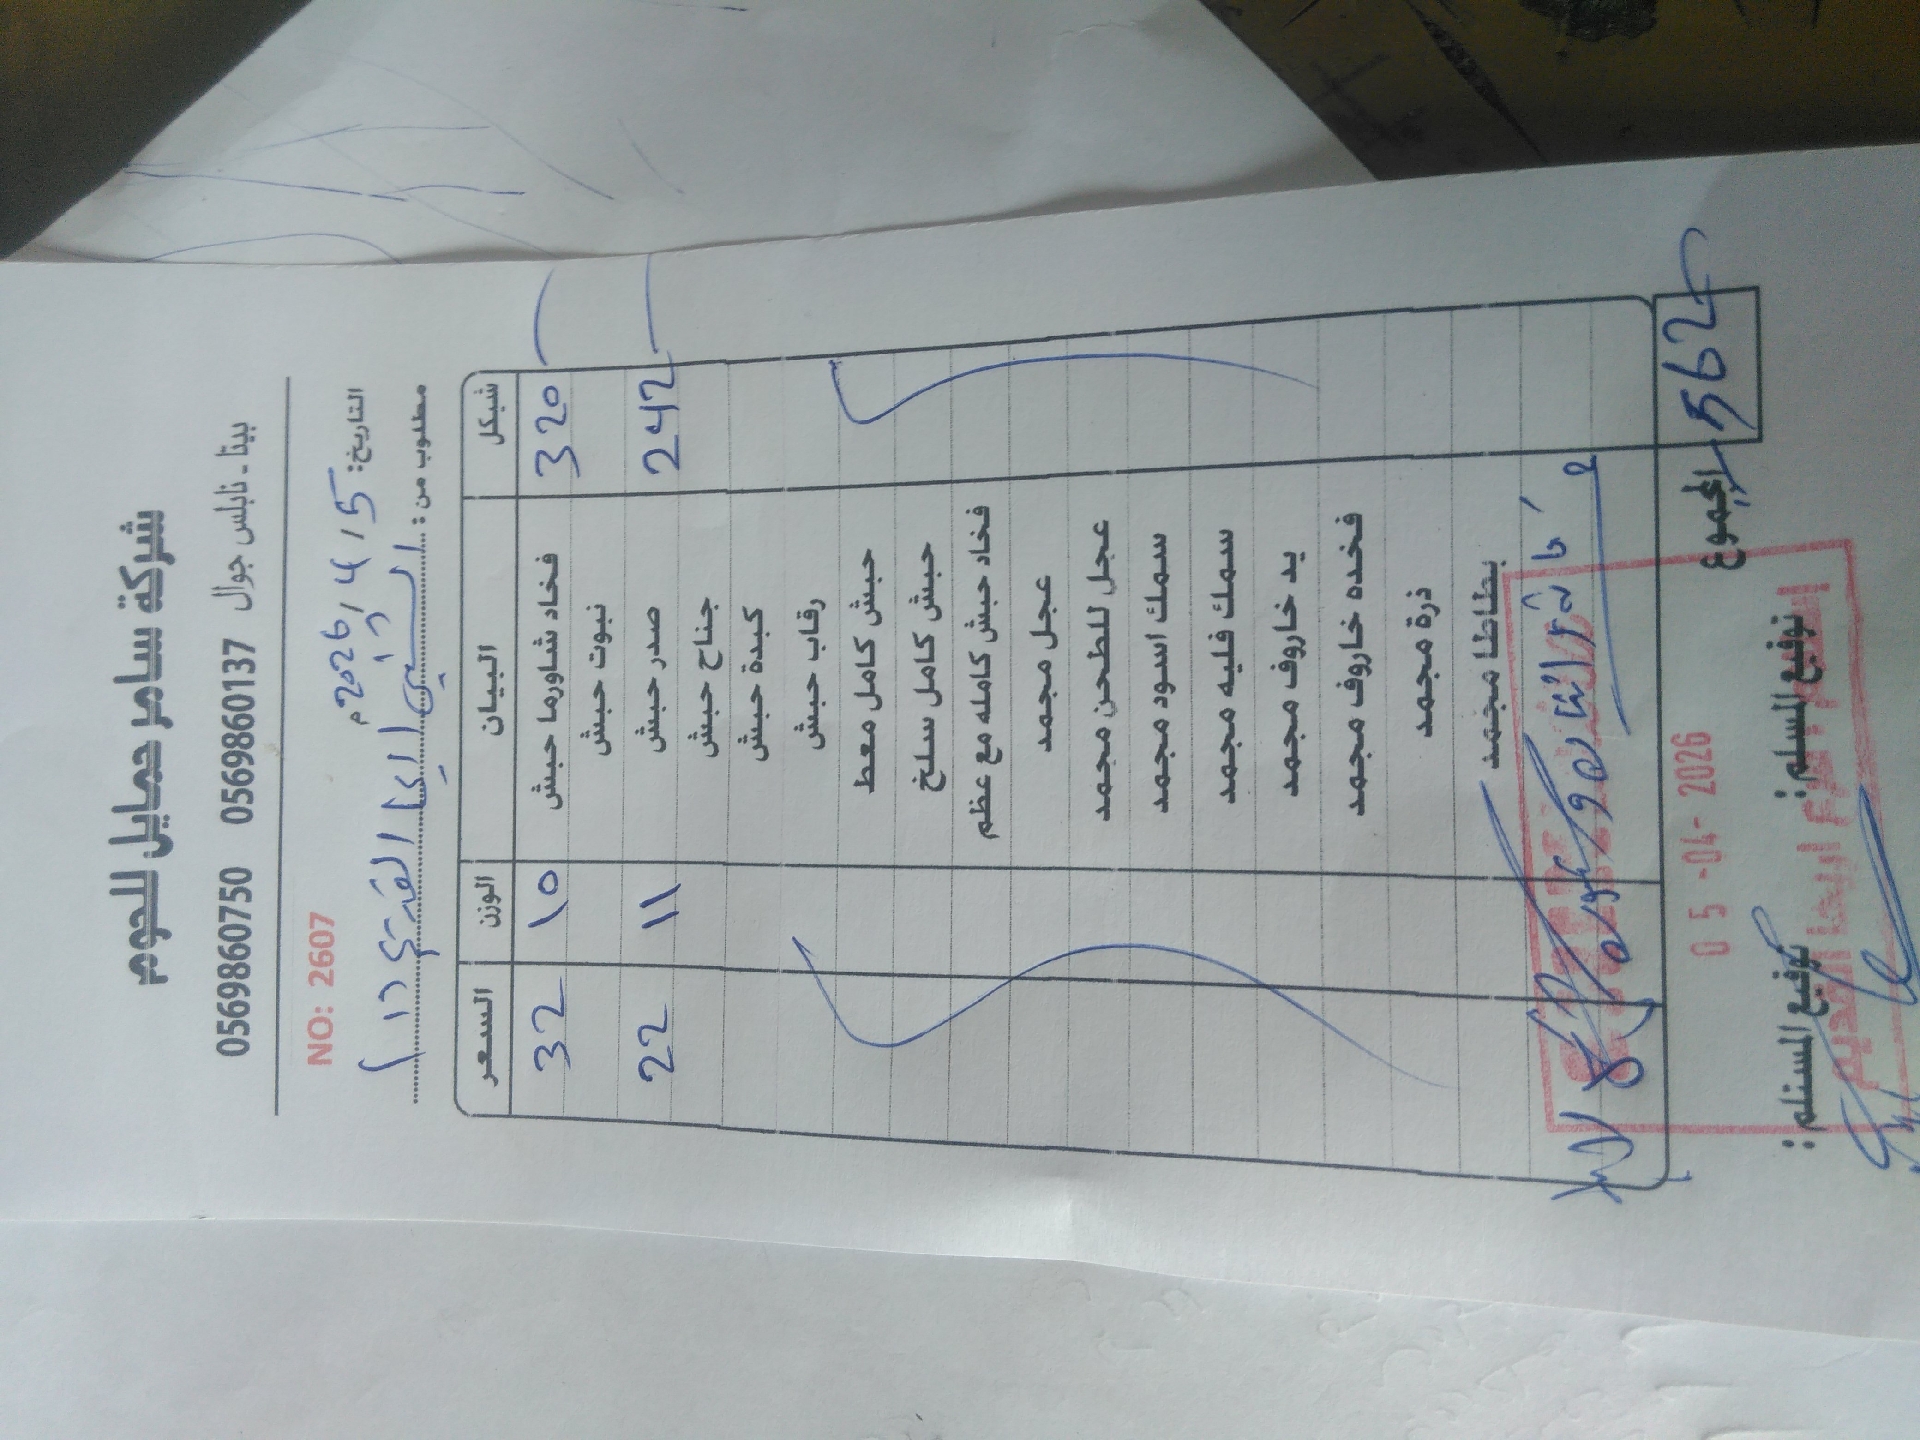 شركة سامر حمايل للحوم
بيتا - نابلس جوال 0569860137 0569860750
NO: 2607
التاريخ: 5 / 4 / 2026 م
مطلوب من:
السعر الوزن البيان شيكل
32 10 فخاد شاورما حبش 320
نبوت حبش
22 11 صدر حبش 242
جناح حبش
كبدة حبش
رقاب حبش
حبش كامل معط
حبش كامل سلخ
فخاد حبش كامله مع عظم
عجل مجمد
عجل للطحن مجمد
سمك اسود مجمد
سمك فليه مجمد
يد خاروف مجمد
فخده خاروف مجمد
ذرة مجمد
بطاطا مجمد
المجموع 562
05 -04- 2026
توقيع المستلم: توقيع المسلم: